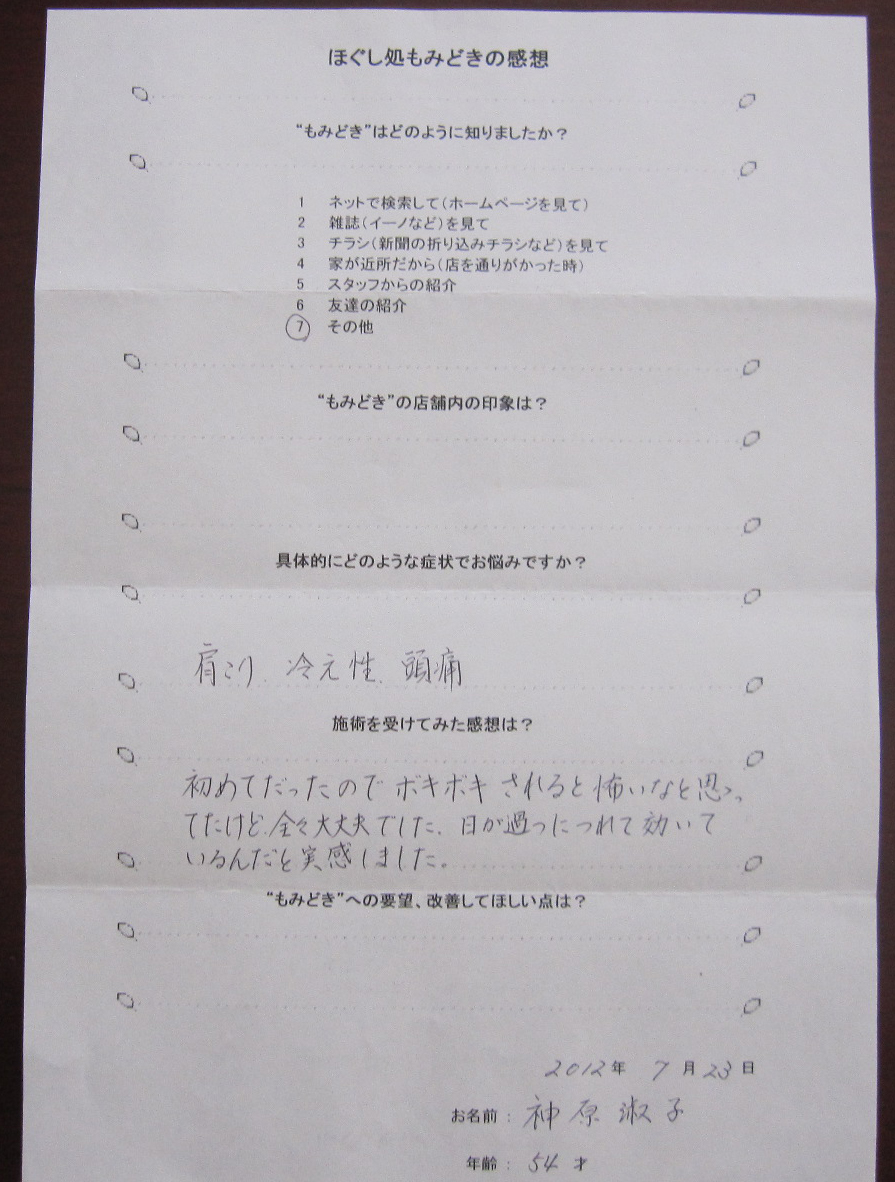 ほぐし処もみどきの感想
“もみどき”はどのように知りましたか？
1 ネットで検索して（ホームページを見て）
2 雑誌（イーノなど）を見て
3 チラシ（新聞の折り込みチラシなど）を見て
4 家が近所だから（店を通りがかった時）
5 スタッフからの紹介
6 友達の紹介
7 その他
“もみどき”の店舗内の印象は？
具体的にどのような症状でお悩みですか？
肩こり、冷え性、頭痛
施術を受けてみた感想は？
初めてだったのでボキボキされると怖いなと思っ
てたけど、全々大丈夫でした、日が過つにつれて効いて
いるんだと実感しました。
“もみどき”への要望、改善してほしい点は？
2012年 7月23日
お名前：神原淑子
年齢：54才